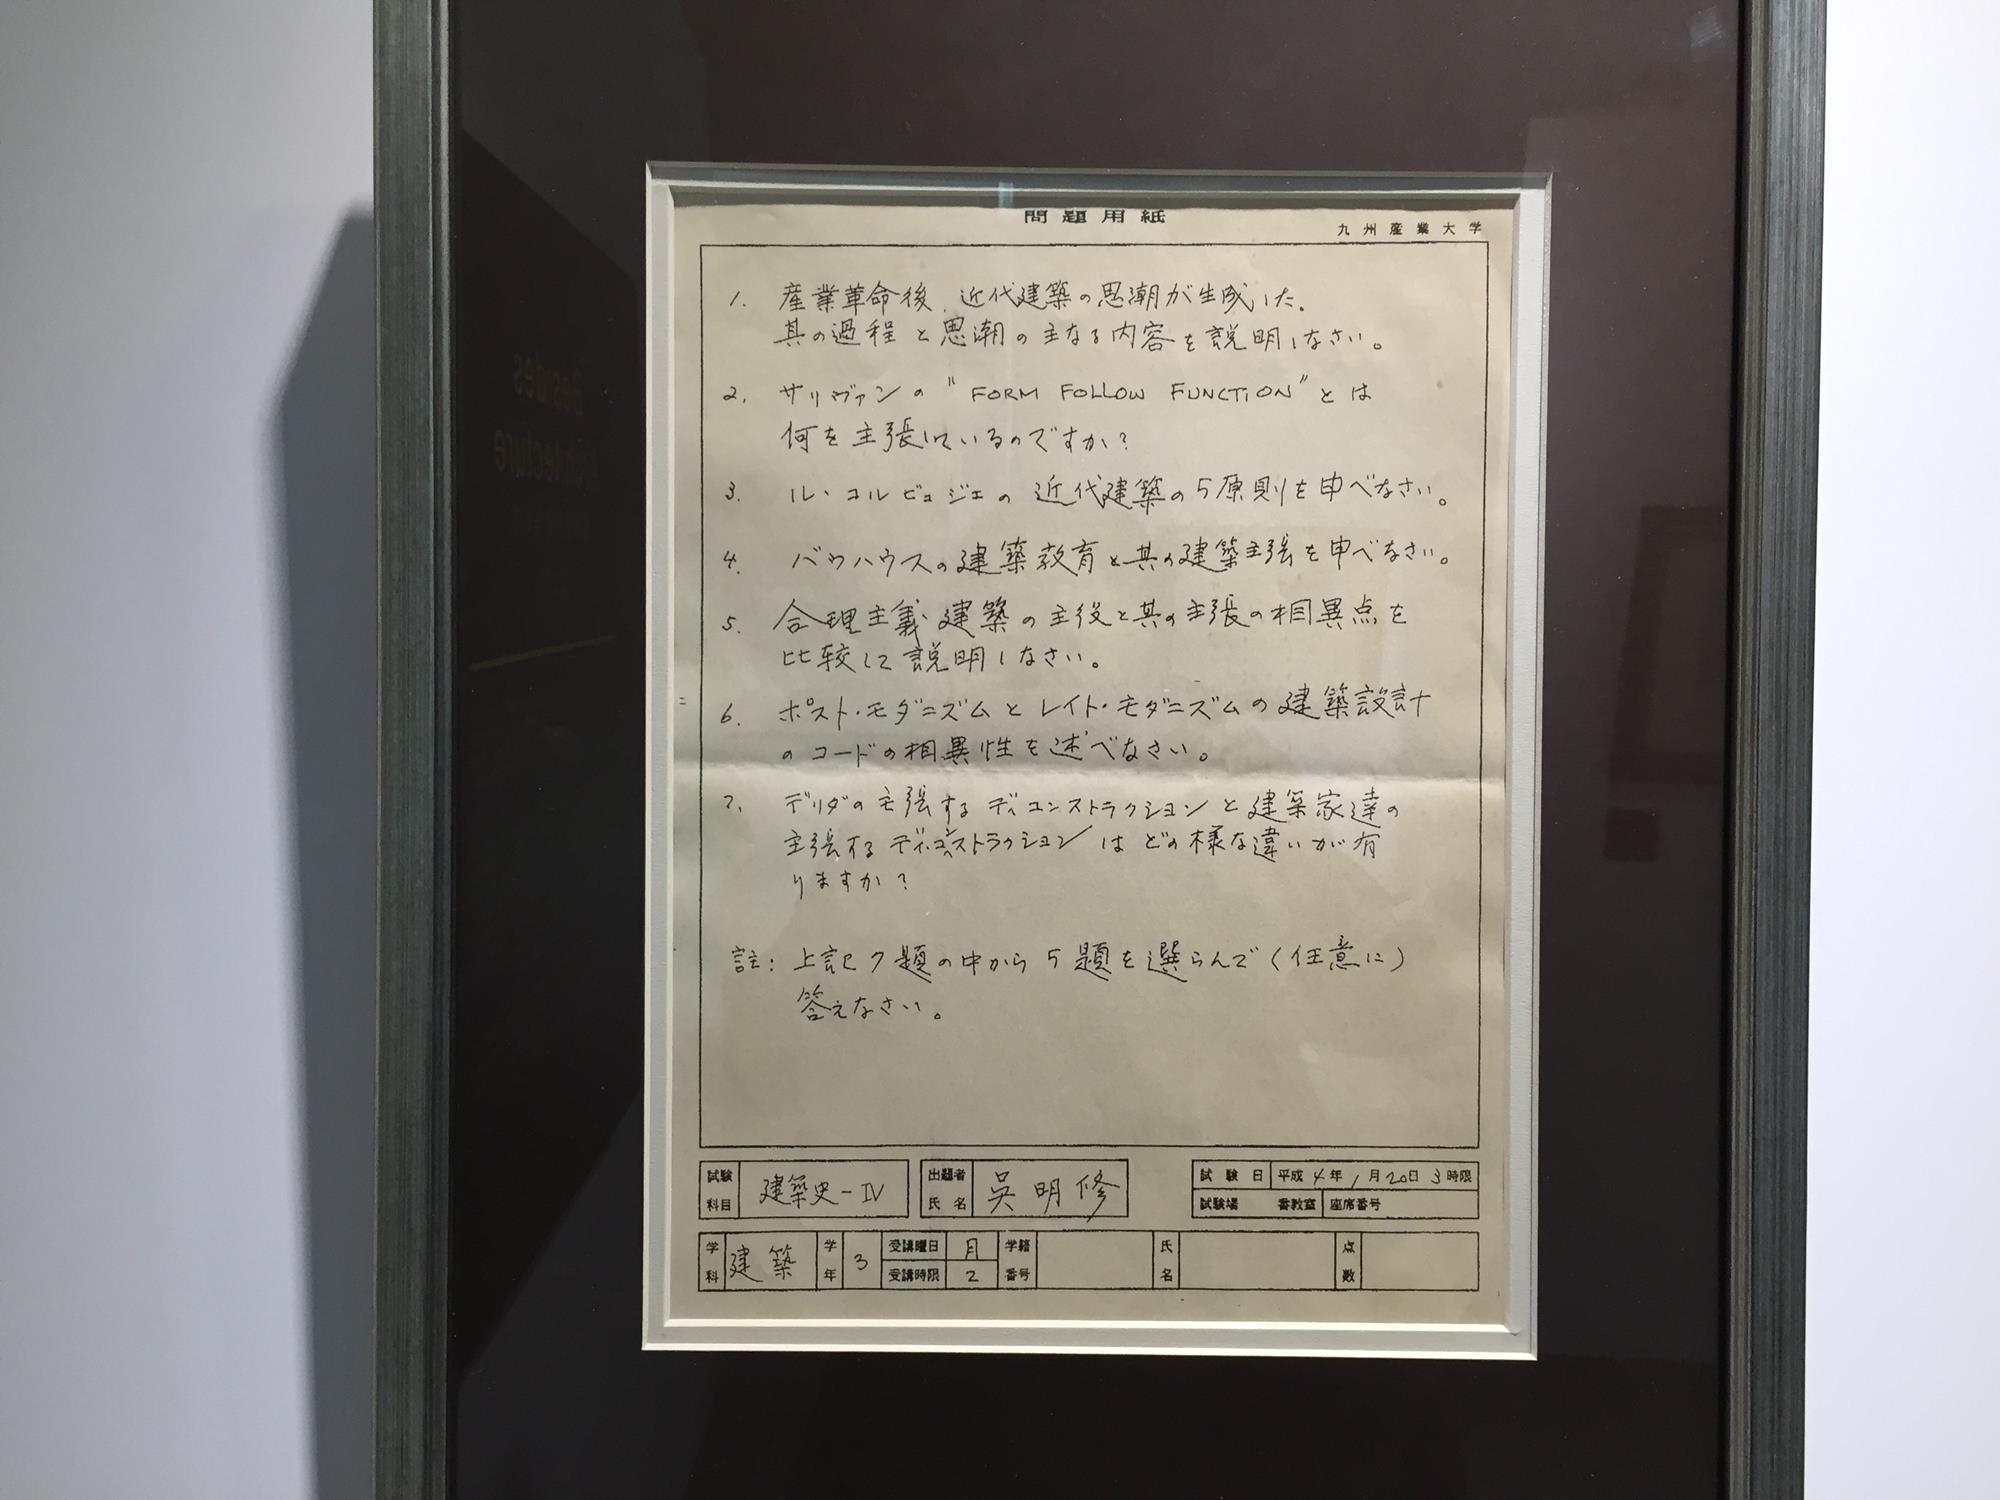 問題用紙
九州産業大学
1. 産業革命後、近代建築の思潮が生成した.
其の過程と思潮の主なる内容を説明しなさい。
2. サリヴァンの "FORM FOLLOW FUNCTION" とは
何を主張しているのですか?
3. ル・コルビュジェの近代建築の5原則を申べなさい。
4. バウハウスの建築教育と其の建築主張を申べなさい。
5. 合理主義建築の主役と其の主張の相異点を
比較して説明しなさい。
6. ポスト・モダニズムとレイト・モダニズムの建築設計
のコードの相異性を述べなさい。
7. デリダの主張するディコンストラクションと建築家達の
主張するディコンストラクションはどの様な違いが有
りますか?
註: 上記7題の中から5題を選らんで(任意に)
答えなさい。
試験科目 建築史-IV
出題者氏名 呉明修
試験日 平成4年1月20日3時限
試験場 番教室 座席番号
学科 建築 学年 3 受講曜日 月 受講時限 2 学籍番号 氏名 点数
Besides
Architecture